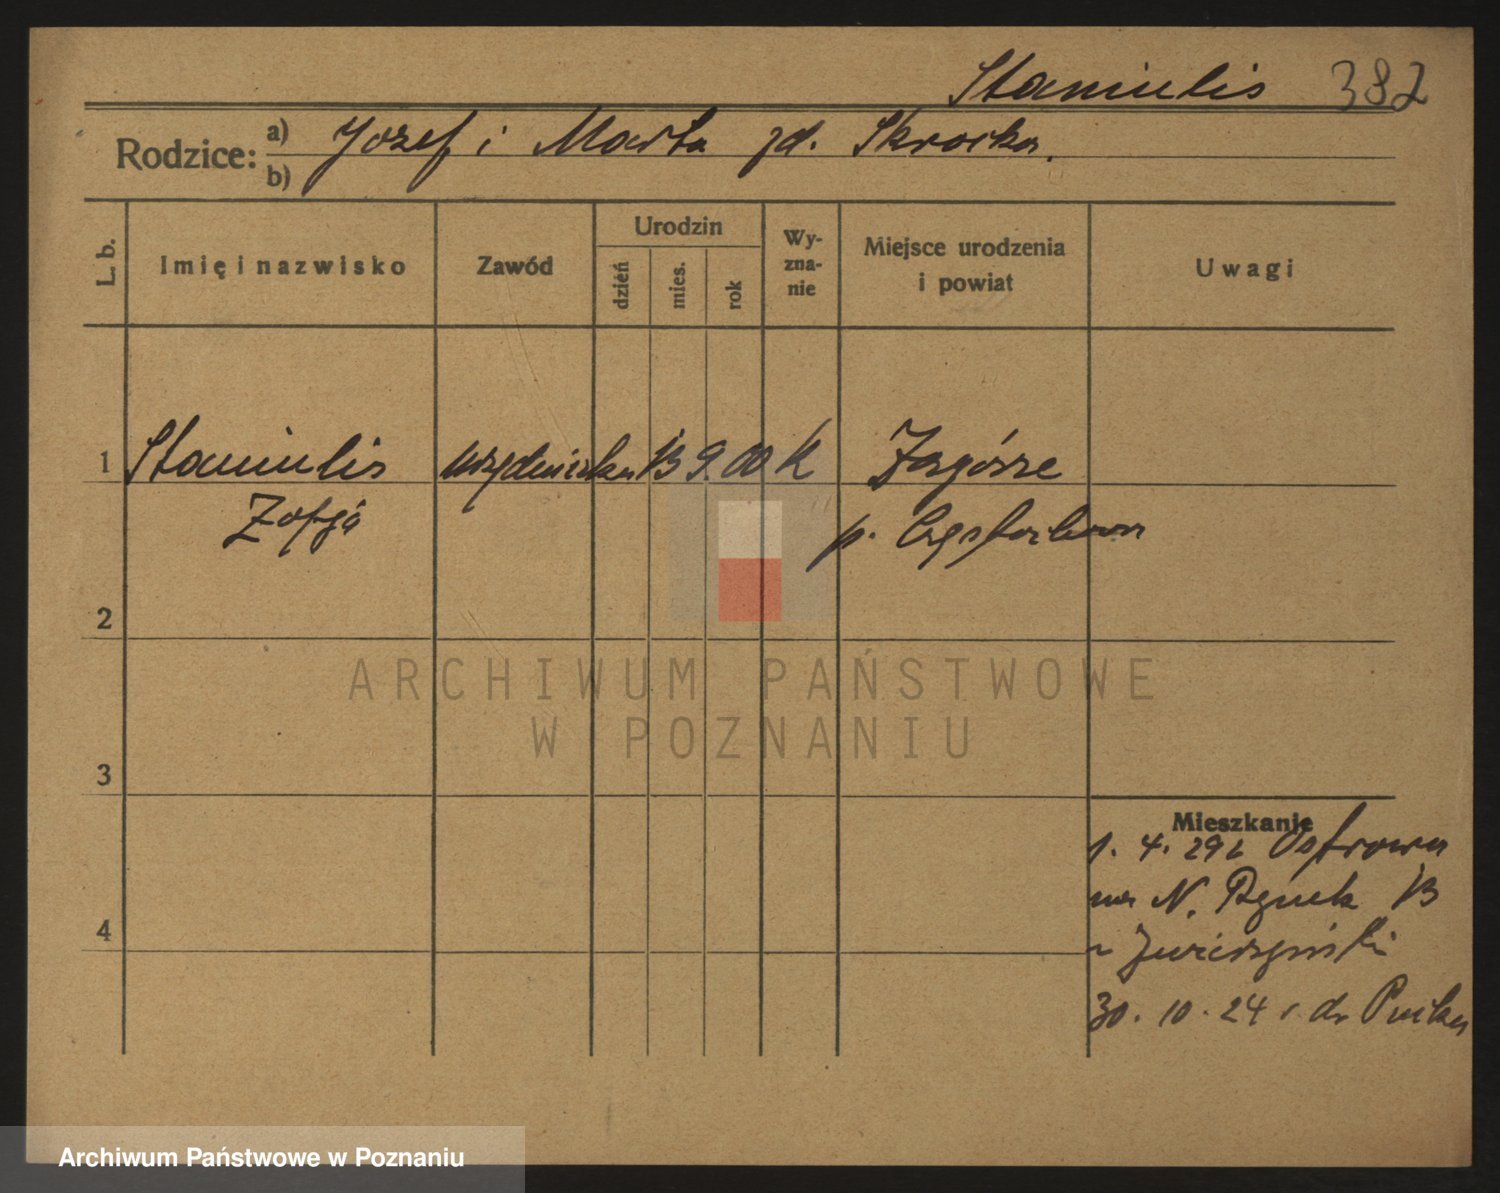 Staniulis 382
Rodzice: a) Józef i Marta zd.
b)
L. b.
Imię i nazwisko
Zawód
Urodzin
dzień
mies.
rok
Wy-
zna-
nie
Miejsce urodzenia
i powiat
Uwagi
1 Staniulis urzędniczka 13 9. 00 K Zagórze
Zofja p. Częstochowa
2
3
4
Mieszkanie
1. 4. 29 z Ostrowa
na N. Rynek 13
30. 10. 24 r. do
ARCHIWUM PAŃSTWOWE
W POZNANIU
Archiwum Państwowe w Poznaniu